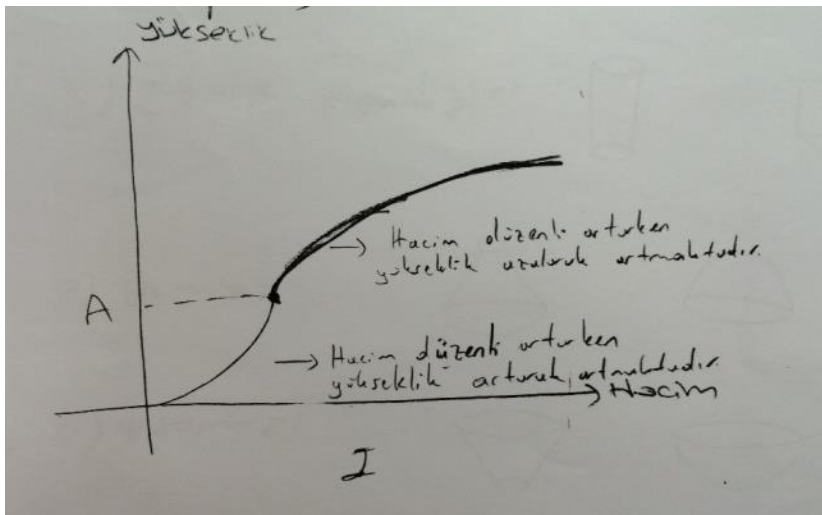 yükseklik
→ Hacim düzenli artarken
yükseklik azalarak artmaktadır.
A
→ Hacim düzenli artarken
yükseklik artarak artmaktadır.
Hacim
I